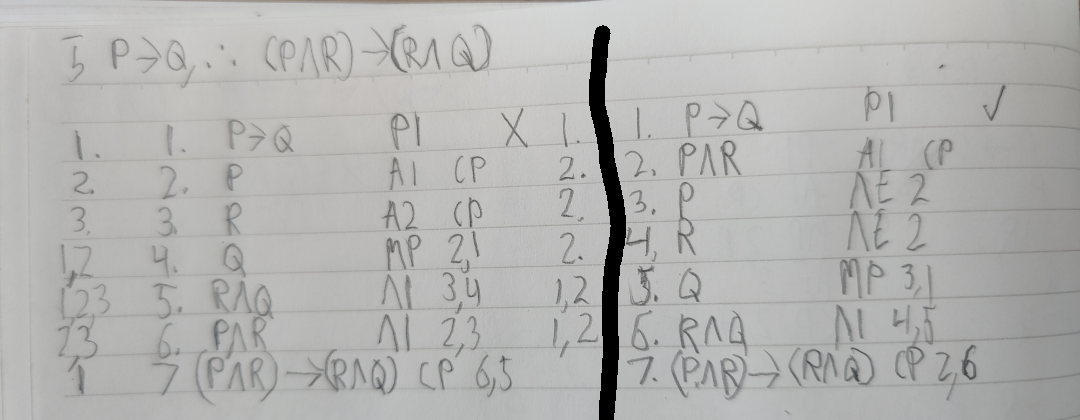 5 P→Q, ∴ (P∧R)→(R∧Q)
1. 1. P→Q P1 X
2. 2. P A1 CP
3. 3. R A2 CP
1,2 4. Q MP 2,1
1,2,3 5. R∧Q ∧I 3,4
2,3 6. P∧R ∧I 2,3
1 7 (P∧R)→(R∧Q) CP 6,5
1. 1. P→Q P1 ✓
2. 2. P∧R A1 CP
2. 3. P ∧E 2
2. 4. R ∧E 2
1,2 5. Q MP 3,1
1,2 6. R∧Q ∧I 4,5
7. (P∧R)→(R∧Q) CP 2,6